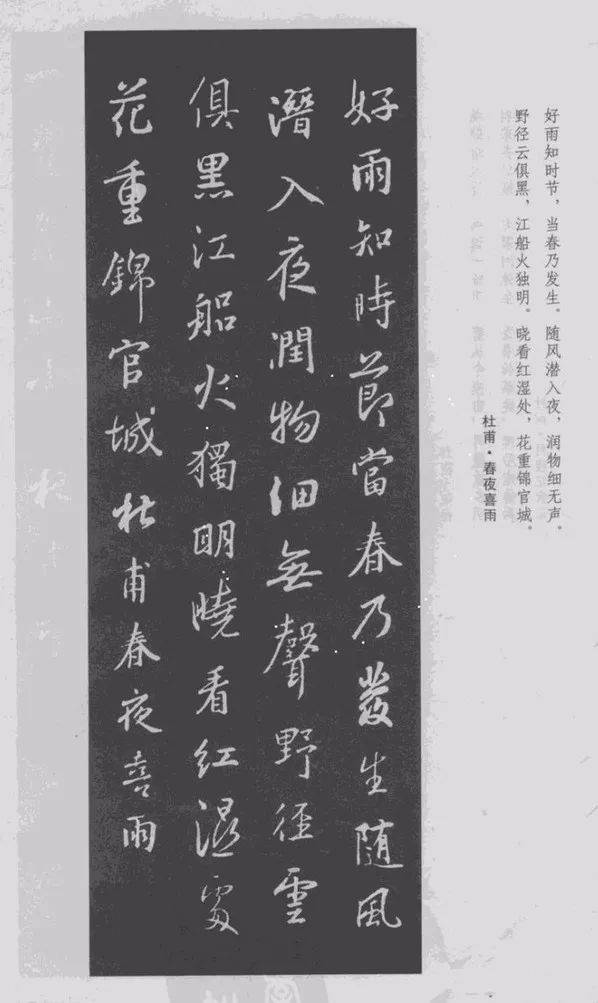 好雨知时节，当春乃发生。随风潜入夜，润物细无声。
野径云俱黑，江船火独明。晓看红湿处，花重锦官城。
杜甫·春夜喜雨
好雨知時節當春乃發生随風
潛入夜潤物細無聲野徑雲
俱黑江船火獨明曉看紅濕處
花重錦官城杜甫春夜喜雨